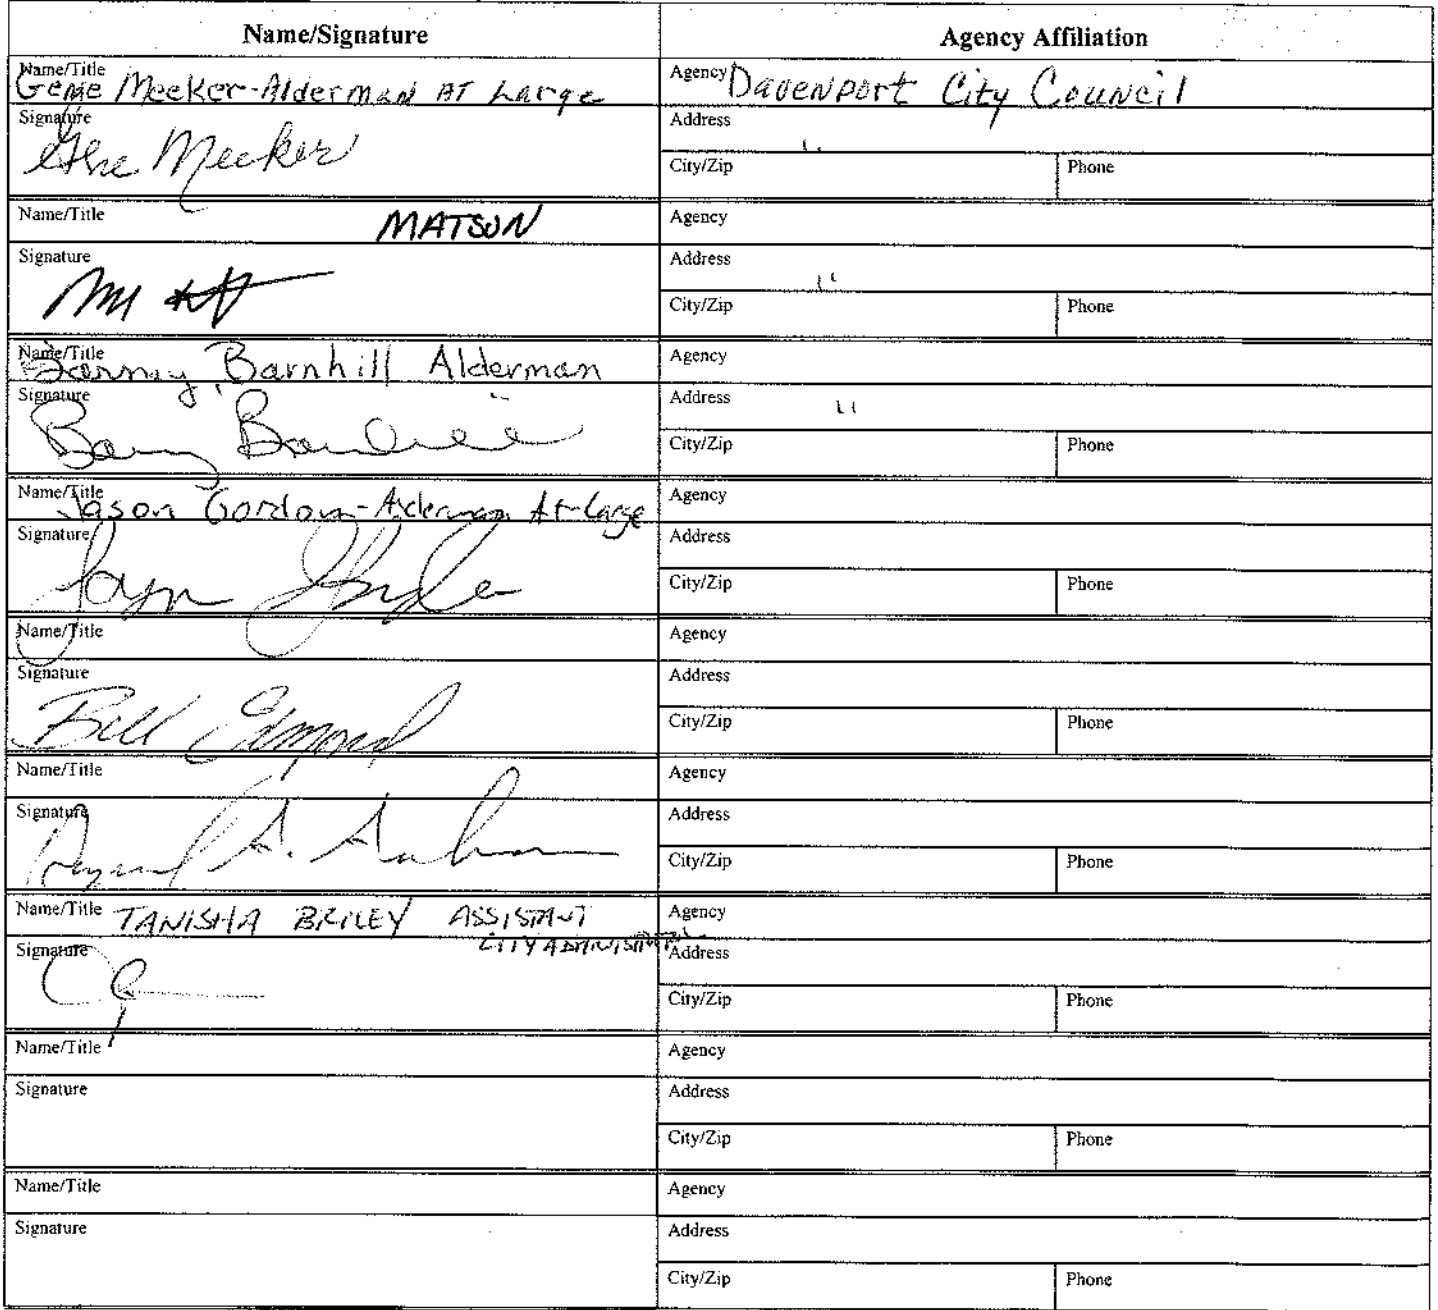 Name/Signature Agency Affiliation
Name/Title Gene Meeker-Alderman AT Large Agency Davenport City Council
Signature Gene Meeker Address "
City/Zip Phone
Name/Title MATSON Agency
Signature Address "
City/Zip Phone
Name/Title Barney Barnhill Alderman Agency
Signature Barney Barnhill Address "
City/Zip Phone
Name/Title Jason Gordon-Alderman At-Large Agency
Signature Address
City/Zip Phone
Name/Title Agency
Signature Bill Edmond Address
City/Zip Phone
Name/Title Agency
Signature Address
City/Zip Phone
Name/Title TANISHA BRILEY ASSISTANT Agency
CITY ADMINISTRATOR
Signature Address
City/Zip Phone
Name/Title Agency
Signature Address
City/Zip Phone
Name/Title Agency
Signature Address
City/Zip Phone